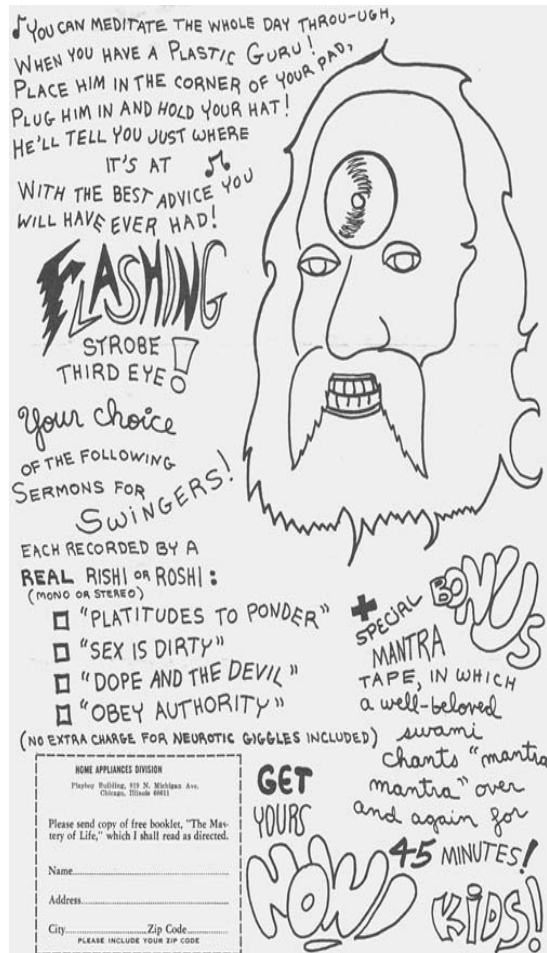 YOU CAN MEDITATE THE WHOLE DAY THROU-UGH,
WHEN YOU HAVE A PLASTIC GURU!
PLACE HIM IN THE CORNER OF YOUR PAD,
PLUG HIM IN AND HOLD YOUR HAT!
HE'LL TELL YOU JUST WHERE
IT'S AT
WITH THE BEST ADVICE YOU
WILL HAVE EVER HAD!
FLASHING
STROBE
THIRD EYE!
Your choice
OF THE FOLLOWING
SERMONS FOR
SWINGERS!
EACH RECORDED BY A
REAL RISHI OR ROSHI:
(MONO OR STEREO)
"PLATITUDES TO PONDER"
"SEX IS DIRTY"
"DOPE AND THE DEVIL"
"OBEY AUTHORITY"
(NO EXTRA CHARGE FOR NEUROTIC GIGGLES INCLUDED)
+ SPECIAL BONUS
MANTRA
TAPE, IN WHICH
a well-beloved
swami
chants "mantra
mantra" over
and again for
45 MINUTES!
HOME APPLIANCES DIVISION
Playboy Building, 919 N. Michigan Ave.
Chicago, Illinois 60611
Please send copy of free booklet, "The Mas-
tery of Life," which I shall read as directed.
Name
Address
City Zip Code
PLEASE INCLUDE YOUR ZIP CODE
GET
YOURS
NOW!
KIDS!